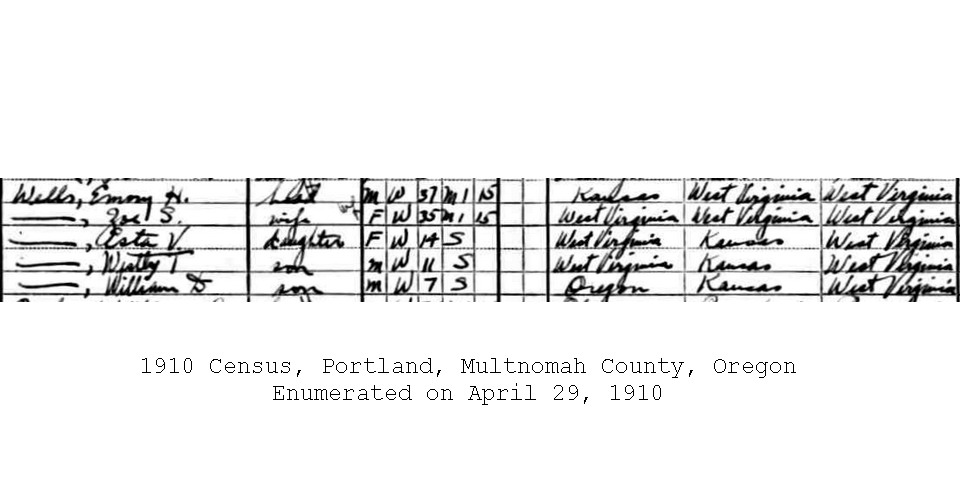 Wells, Emory H. Head M W 37 M1 15 Kansas West Virginia West Virginia
——, Zoe S. wife F W 35 M1 15 West Virginia West Virginia West Virginia
——, Esta V. daughter F W 14 S West Virginia Kansas West Virginia
——, Westly T son M W 11 S West Virginia Kansas West Virginia
——, William D son M W 7 S Oregon Kansas West Virginia
1910 Census, Portland, Multnomah County, Oregon
Enumerated on April 29, 1910